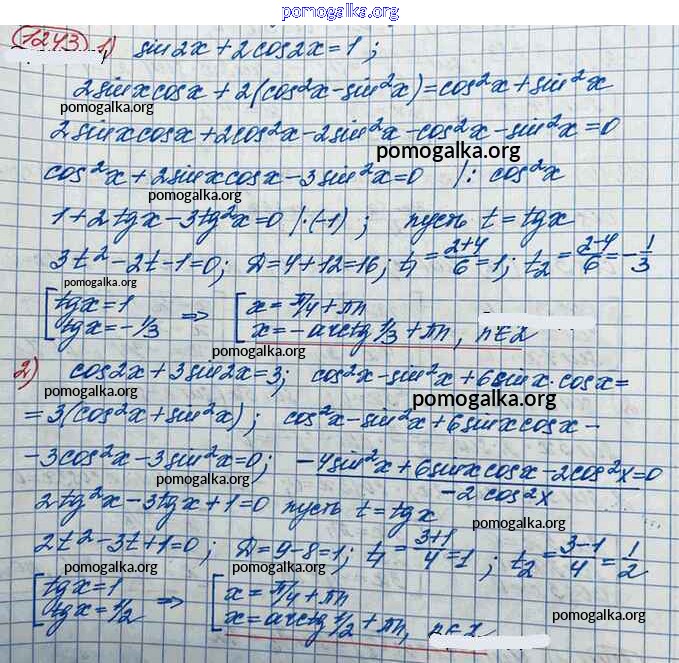 pomogalka.org
1243 1) sin2x + 2cos2x = 1;
2sinxcosx + 2(cos²x - sin²x) = cos²x + sin²x
pomogalka.org
pomogalka.org
2sinxcosx + 2cos²x - 2sin²x - cos²x - sin²x = 0
pomogalka.org
cos²x + 2sinxcosx - 3sin²x = 0 /: cos²x
pomogalka.org
1 + 2tgx - 3tg²x = 0 /·(-1); пусть t = tgx
3t² - 2t - 1 = 0; D = 4 + 12 = 16; t₁ = (2+4)/6 = 1; t₂ = (2-4)/6 = -1/3
pomogalka.org
[tgx = 1 => [x = π/4 + πn
[tgx = -1/3 [x = -arctg 1/3 + πn, n∈Z
pomogalka.org
2) cos2x + 3sin2x = 3; cos²x - sin²x + 6sinx·cosx =
pomogalka.org pomogalka.org
= 3(cos²x + sin²x); cos²x - sin²x + 6sinxcosx -
- 3cos²x - 3sin²x = 0; (-4sin²x + 6sinxcosx - 2cos²x = 0)/(-2cos²x)
pomogalka.org
2tg²x - 3tgx + 1 = 0 пусть t = tgx
pomogalka.org
2t² - 3t + 1 = 0; D = 9 - 8 = 1; t₁ = (3+1)/4 = 1; t₂ = (3-1)/4 = 1/2
pomogalka.org pomogalka.org
[tgx = 1 => [x = π/4 + πn
[tgx = 1/2 [x = arctg 1/2 + πn, n∈Z
pomogalka.org